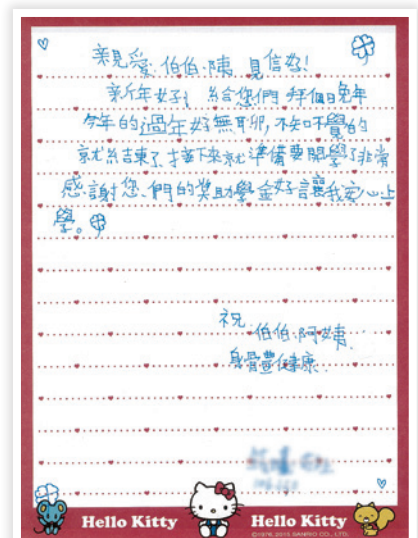 親愛.伯伯.姨 見信好!
新年好! 給您們 拜個晚年
今年的過年好無聊,不知不覺的
就結束了,接下來就準備要開學了非常
感謝您.們的獎助學金好讓我安心上
學。
祝
伯伯.阿姨.
身體健康.
Hello Kitty Hello Kitty
©1976, 2013 SANRIO CO., LTD.